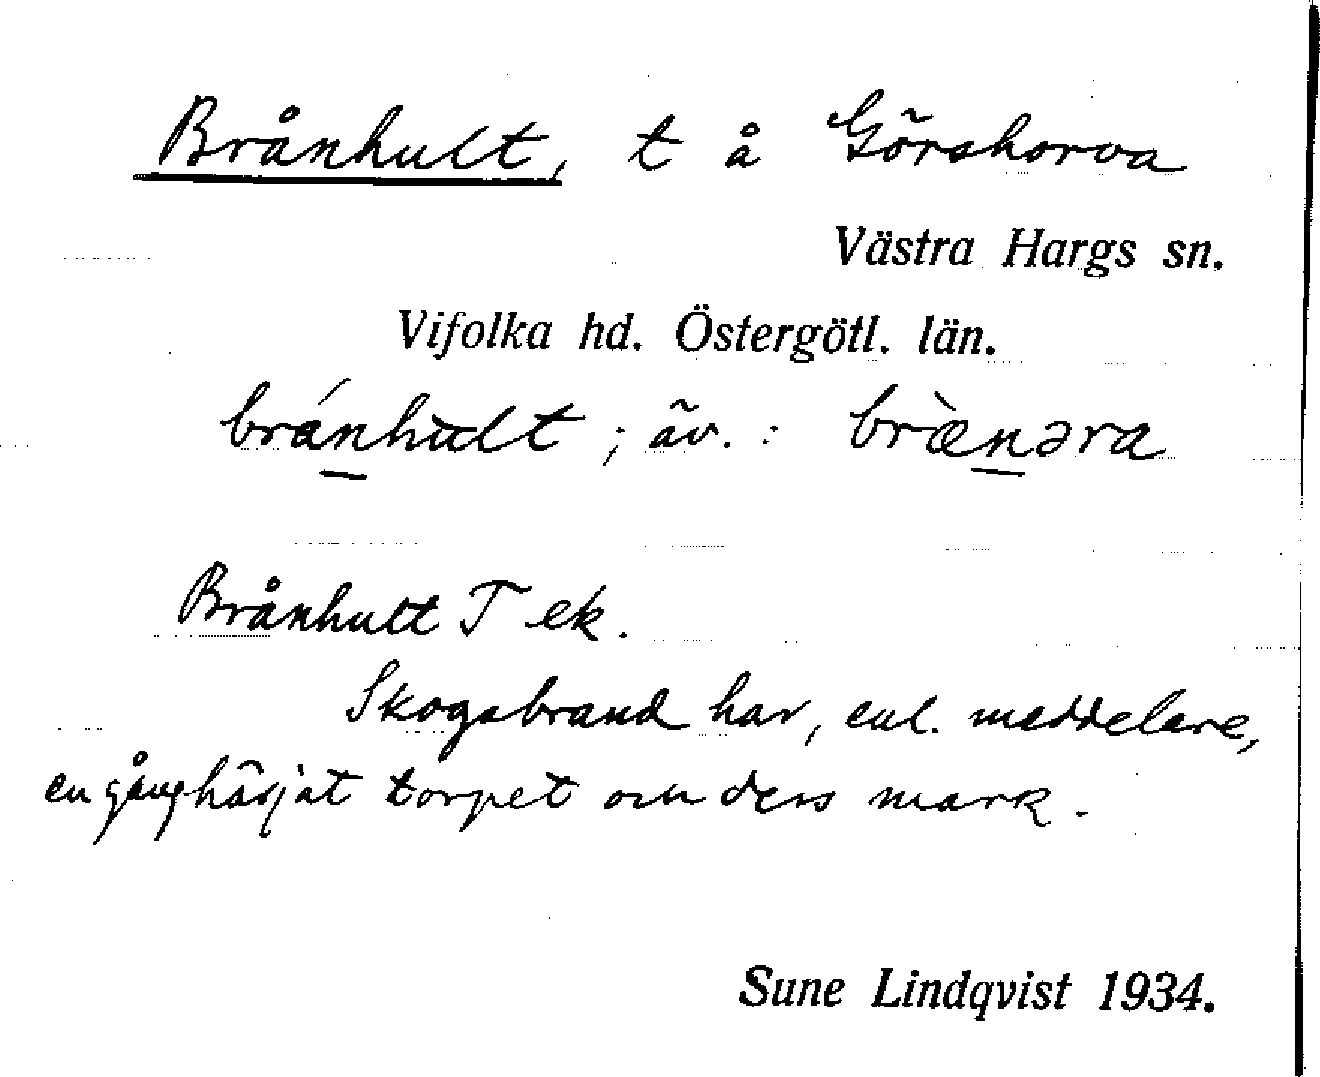 Brånhult, t å Görshorva
Västra Hargs sn.
Vifolka hd. Östergötl. län.
bránhult ; äv. : brænəra
Brånhult T ek.
Skogsbrand har, enl. meddelare,
en gång härjat torpet och dess mark.
Sune Lindqvist 1934.